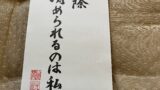 除
められるのは私